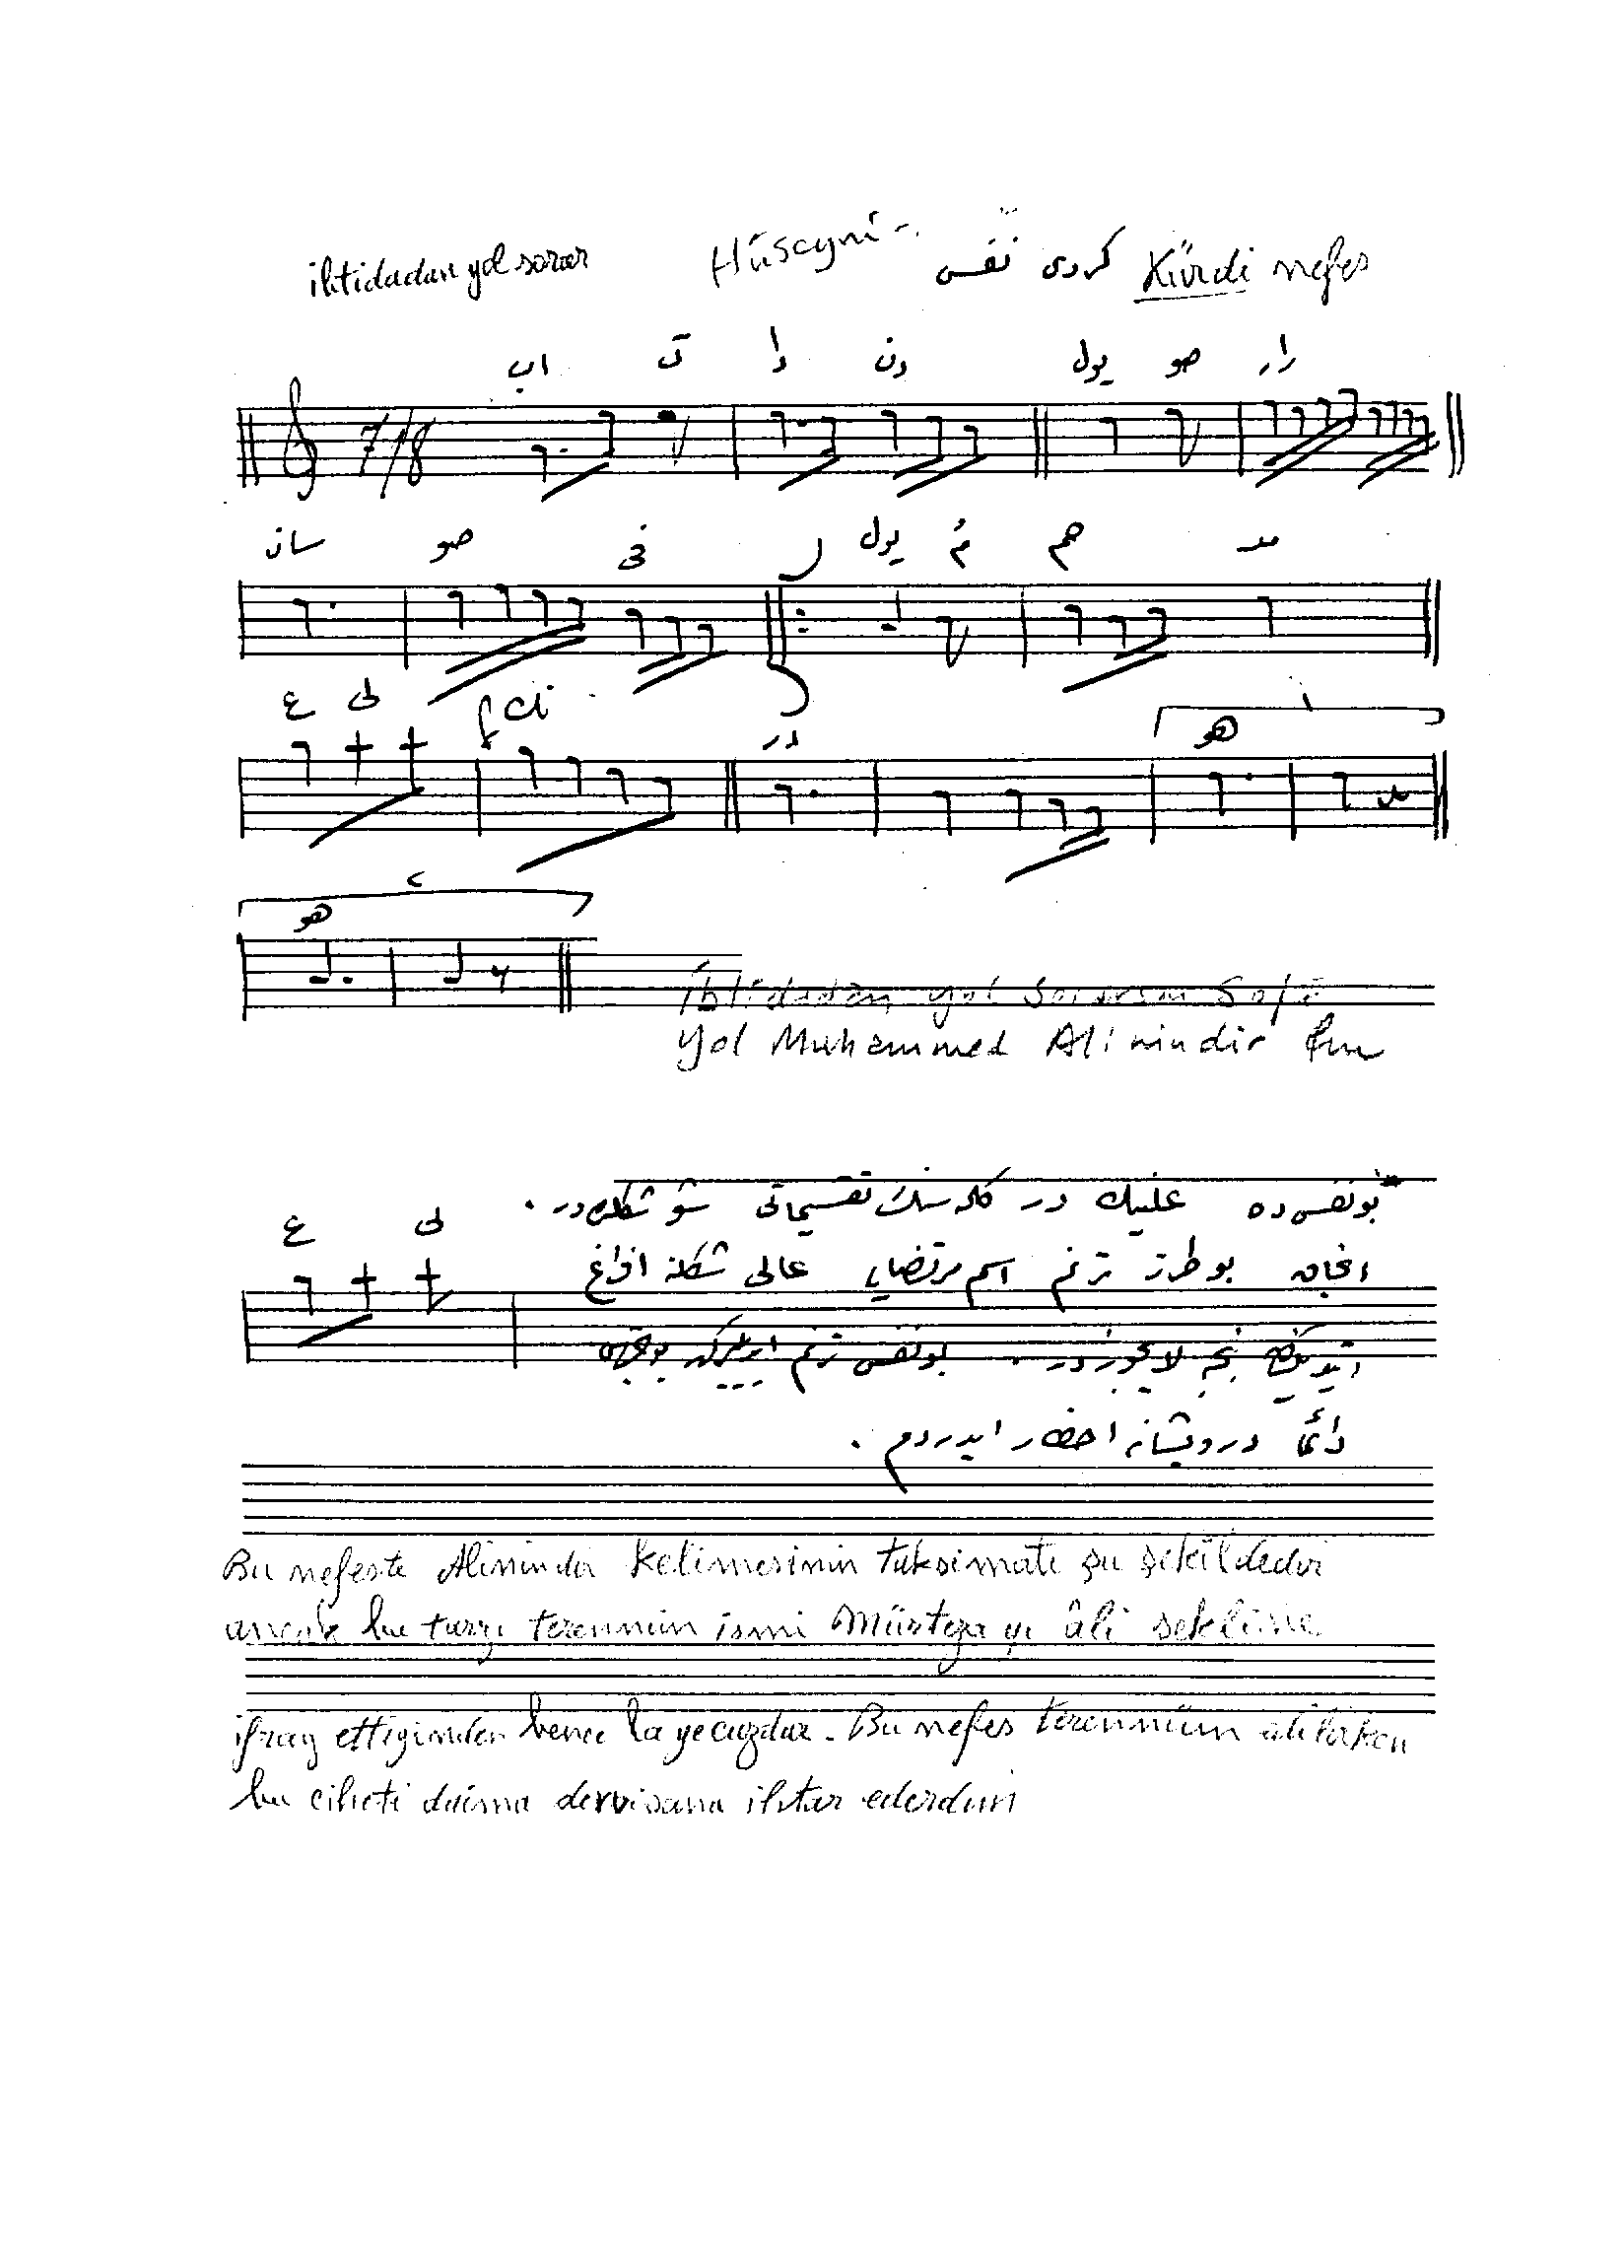 ihtidadan yol sorar Hüseyni كردى نفس Kürdi nefes
اب ت دا دن يول صو رار
7/8
سان صو فى يول مُ هم مد
ع لى
در هو ١
٢
هو
İbtidadan yol sorarsan Sofi
Yol Muhammed Ali'nindir
بو نفس ده علينك در كلمه سنك تقسيماتى شو شكلده در .
ع لى
انجاق بو طرز ترنم اسم مرتضايى عالى شكلنه افراغ
ايتديكندن بنجه لا يجوز در . بو نفس ترنم ايديلركن بو جهتى
دائما درويشانه اخطار ايدردم .
Bu nefeste Alinindir kelimesinin taksimatı şu şekildedir
ancak bu tarzı terennüm ismi Mürtezayı âli şekline
ifrağ ettiğinden bence la yecuzdur. Bu nefes terennüm edilirken
bu ciheti daima dervişana ihtar ederdim